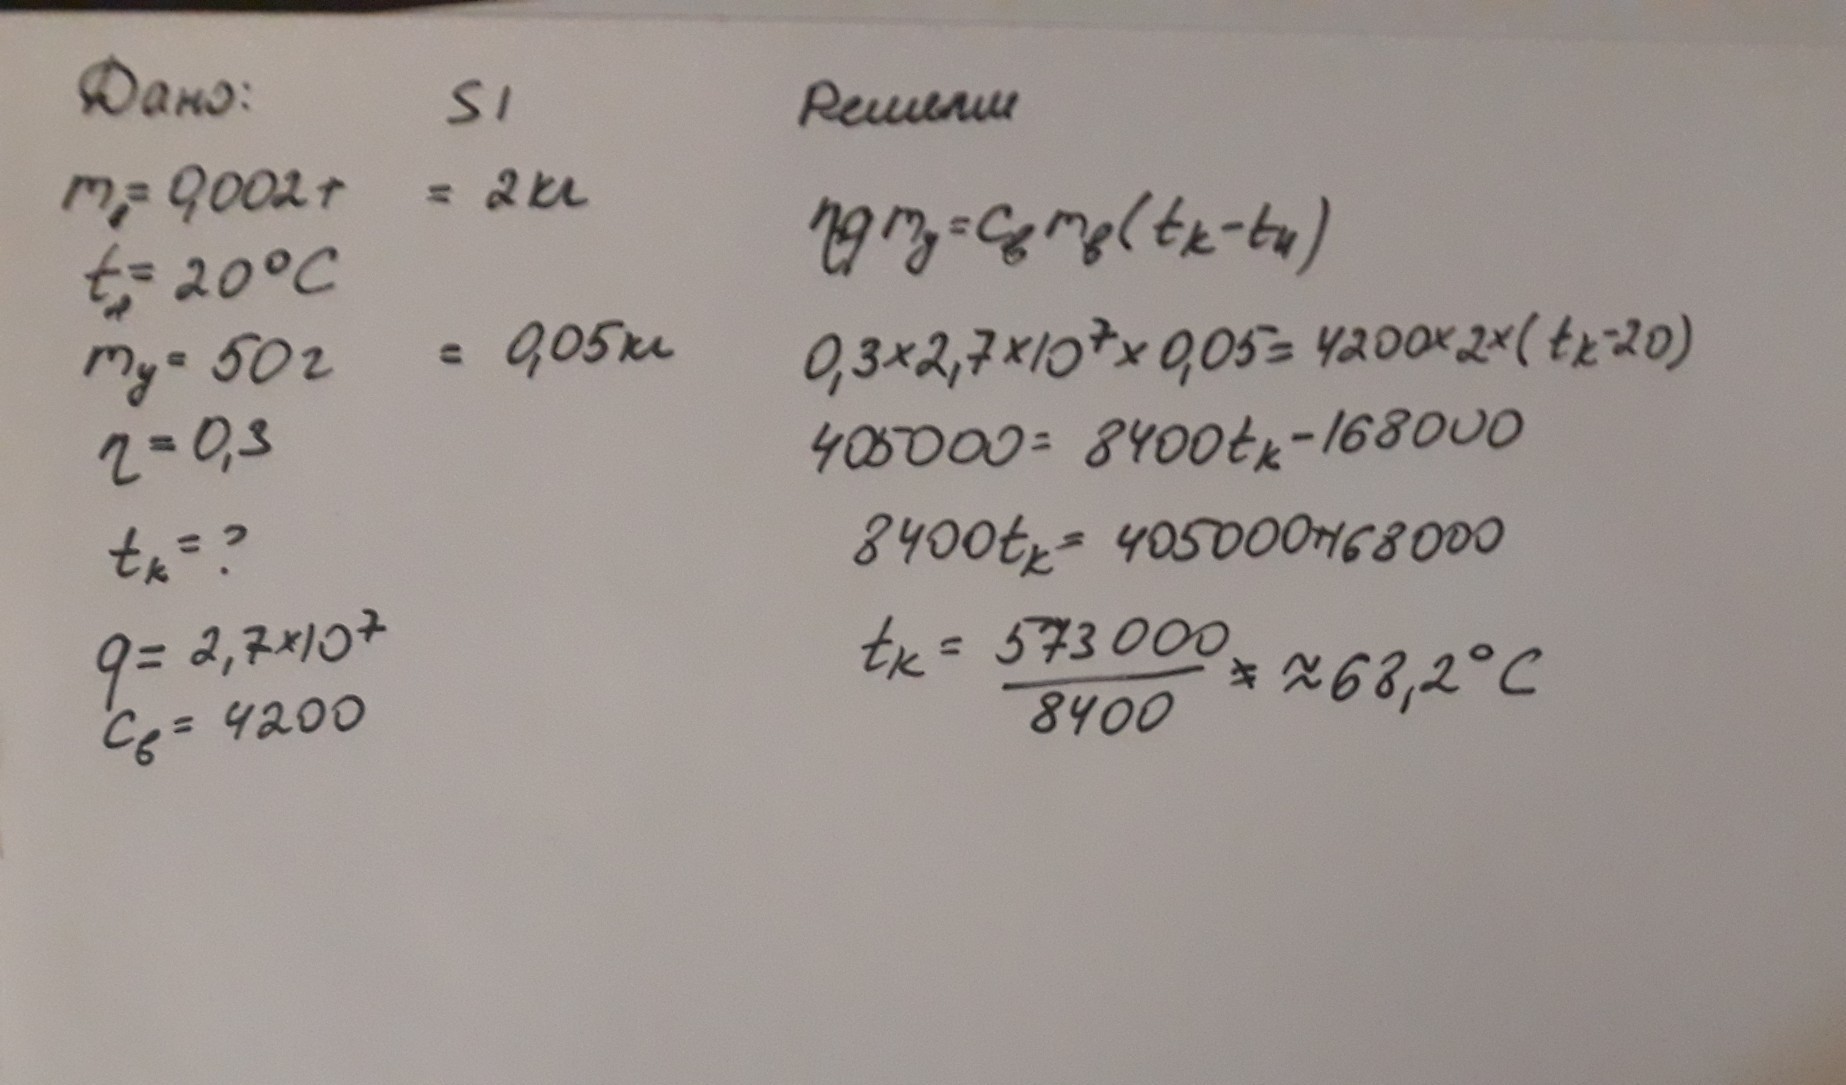 Дано:
SI
m₁= 0,002т = 2кг
t₁= 20°C
mу= 50г = 0,05кг
η=0,3
tк=?
q= 2,7×10⁷
cв= 4200
Решение
ηqmу=cвmв(tк-tн)
0,3×2,7×10⁷×0,05= 4200×2×(tк-20)
405000= 8400tк-168000
8400tк= 405000+168000
tк= 573000/8400 ≈68,2°C